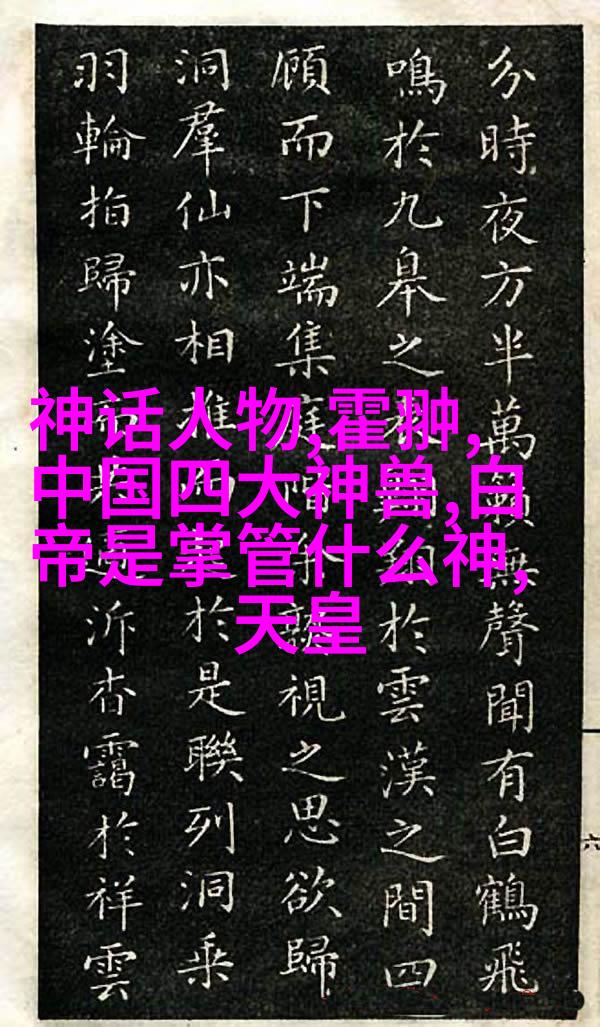 神话人物,霍翀,
中国四大神兽,白
帝是掌管什么神,
天皇
分時夜方半萬籟無聲聞有白鶴飛
鳴於九皋之翔於雲漢之間四
顧而下端集庭視之思欲歸
洞羣仙亦相推於是聯列洞乘
羽輪拍歸塗泝杳靄於祥雲
六